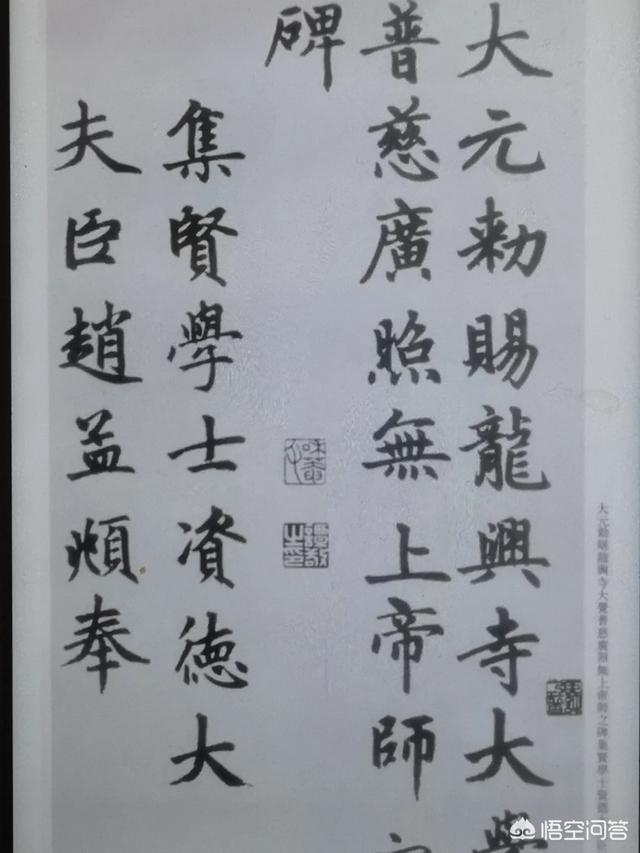 大元勑賜龍興寺大覺
普慈廣照無上帝師
碑
集賢學士資德大
夫臣趙孟頫奉
大元勑賜龍興寺大覺普慈廣照無上帝師之碑集賢學士資德
悟空问答